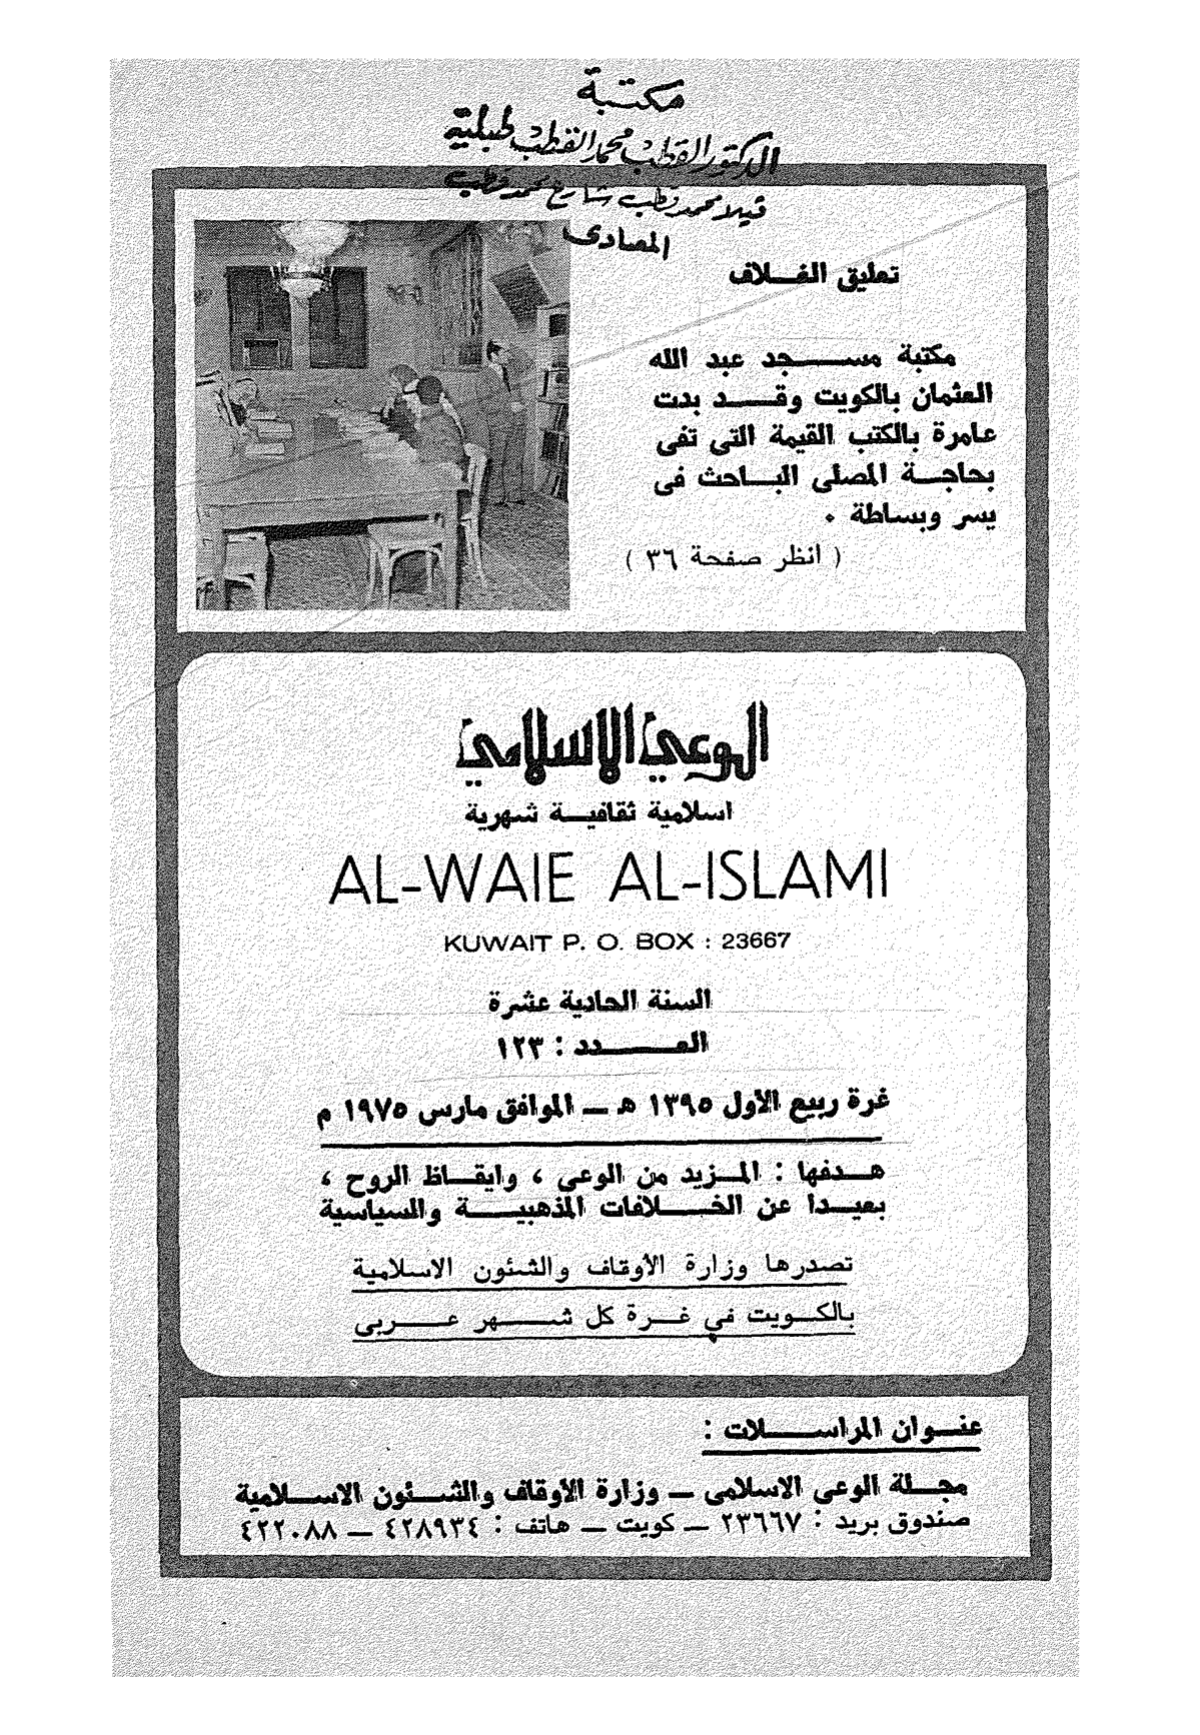 مكتبة
الدكتور القطب محمد القطب طبلية
فيلا محمد قطب شارع محمد قطب
المعادى
تعليق الغلاف
مكتبة مسجد عبد الله
العثمان بالكويت وقد بدت
عامرة بالكتب القيمة التى تفى
بحاجة المصلى الباحث فى
يسر وبساطة .
( انظر صفحة ٣٦ )
الوعي الاسلامي
اسلامية ثقافية شهرية
AL-WAIE AL-ISLAMI
KUWAIT P. O. BOX : 23667
السنة الحادية عشرة
العدد : ١٢٣
غرة ربيع الأول ١٣٩٥ هـ — الموافق مارس ١٩٧٥ م
هدفها : المزيد من الوعى ، وايقاظ الروح ،
بعيدا عن الخلافات المذهبية والسياسية
تصدرها وزارة الأوقاف والشئون الاسلامية
بالكويت في غرة كل شهر عربى
عنوان المراسلات :
مجلة الوعى الاسلامى — وزارة الأوقاف والشئون الاسلامية
صندوق بريد : ٢٣٦٦٧ — كويت — هاتف : ٤٢٨٩٣٤ — ٤٢٢٠٨٨